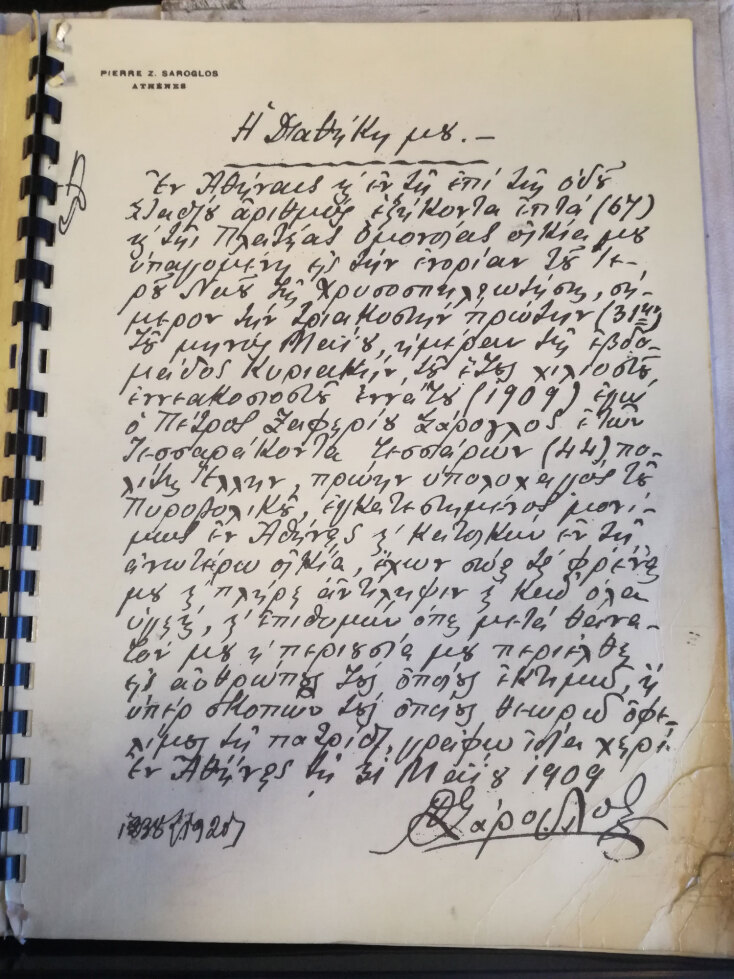 PIERRE Z. SAROGLOS
ATHÈNES
Ἡ Διαθήκη μου.—
Ἐν Ἀθήναις κ' ἐν τῇ ἐπὶ τῆς ὁδοῦ
Σταδίου ἀριθμὸς ἑξήκοντα ἑπτά (67)
κ' τῆς Πλατείας Ὁμονοίας οἰκίᾳ μου
ὑπαγομένῃ εἰς τὴν ἐνορίαν τοῦ Ἱε-
ροῦ Ναοῦ τῆς Χρυσοσπηλιωτίσσης, σή-
μερον τὴν τριακοστὴν πρώτην (31ην)
τοῦ μηνὸς Μαΐου, ἡμέραν τῆς ἑβδο-
μάδος Κυριακὴν τοῦ ἔτους χιλιοστοῦ
ἐννεακοσιοστοῦ ἐννάτου (1909) ἐγὼ
ὁ Πέτρος Ζαφειρίου Σάρογλος ἐτῶν
τεσσαράκοντα τεσσάρων (44) πο-
λίτης Ἕλλην, πρώην ὑπολοχαγὸς τοῦ
Πυροβολικοῦ, ἐγκατεστημένος μονί-
μως ἐν Ἀθήναις κ' κατοικῶν ἐν τῇ
ἀνωτέρω οἰκίᾳ, ἔχων σώας τὰς φρένας
μου κ' πλήρη ἀντίληψιν κ' καθ' ὅλα
ὑγιής, κ' ἐπιθυμῶν ὅπως μετὰ θάνα-
τόν μου ἡ περιουσία μου περιέλθῃ
εἰς ἀνθρώπους τοὺς ὁποίους ἐκτιμῶ, ἢ
ὑπὲρ σκοπῶν τοὺς ὁποίους θεωρῶ ὠφε-
λίμους τῇ πατρίδι, γράφω ἰδίᾳ χειρί.
Ἐν Ἀθήναις τῇ 31 Μαΐου 1909
ΠΖΣάρογλος